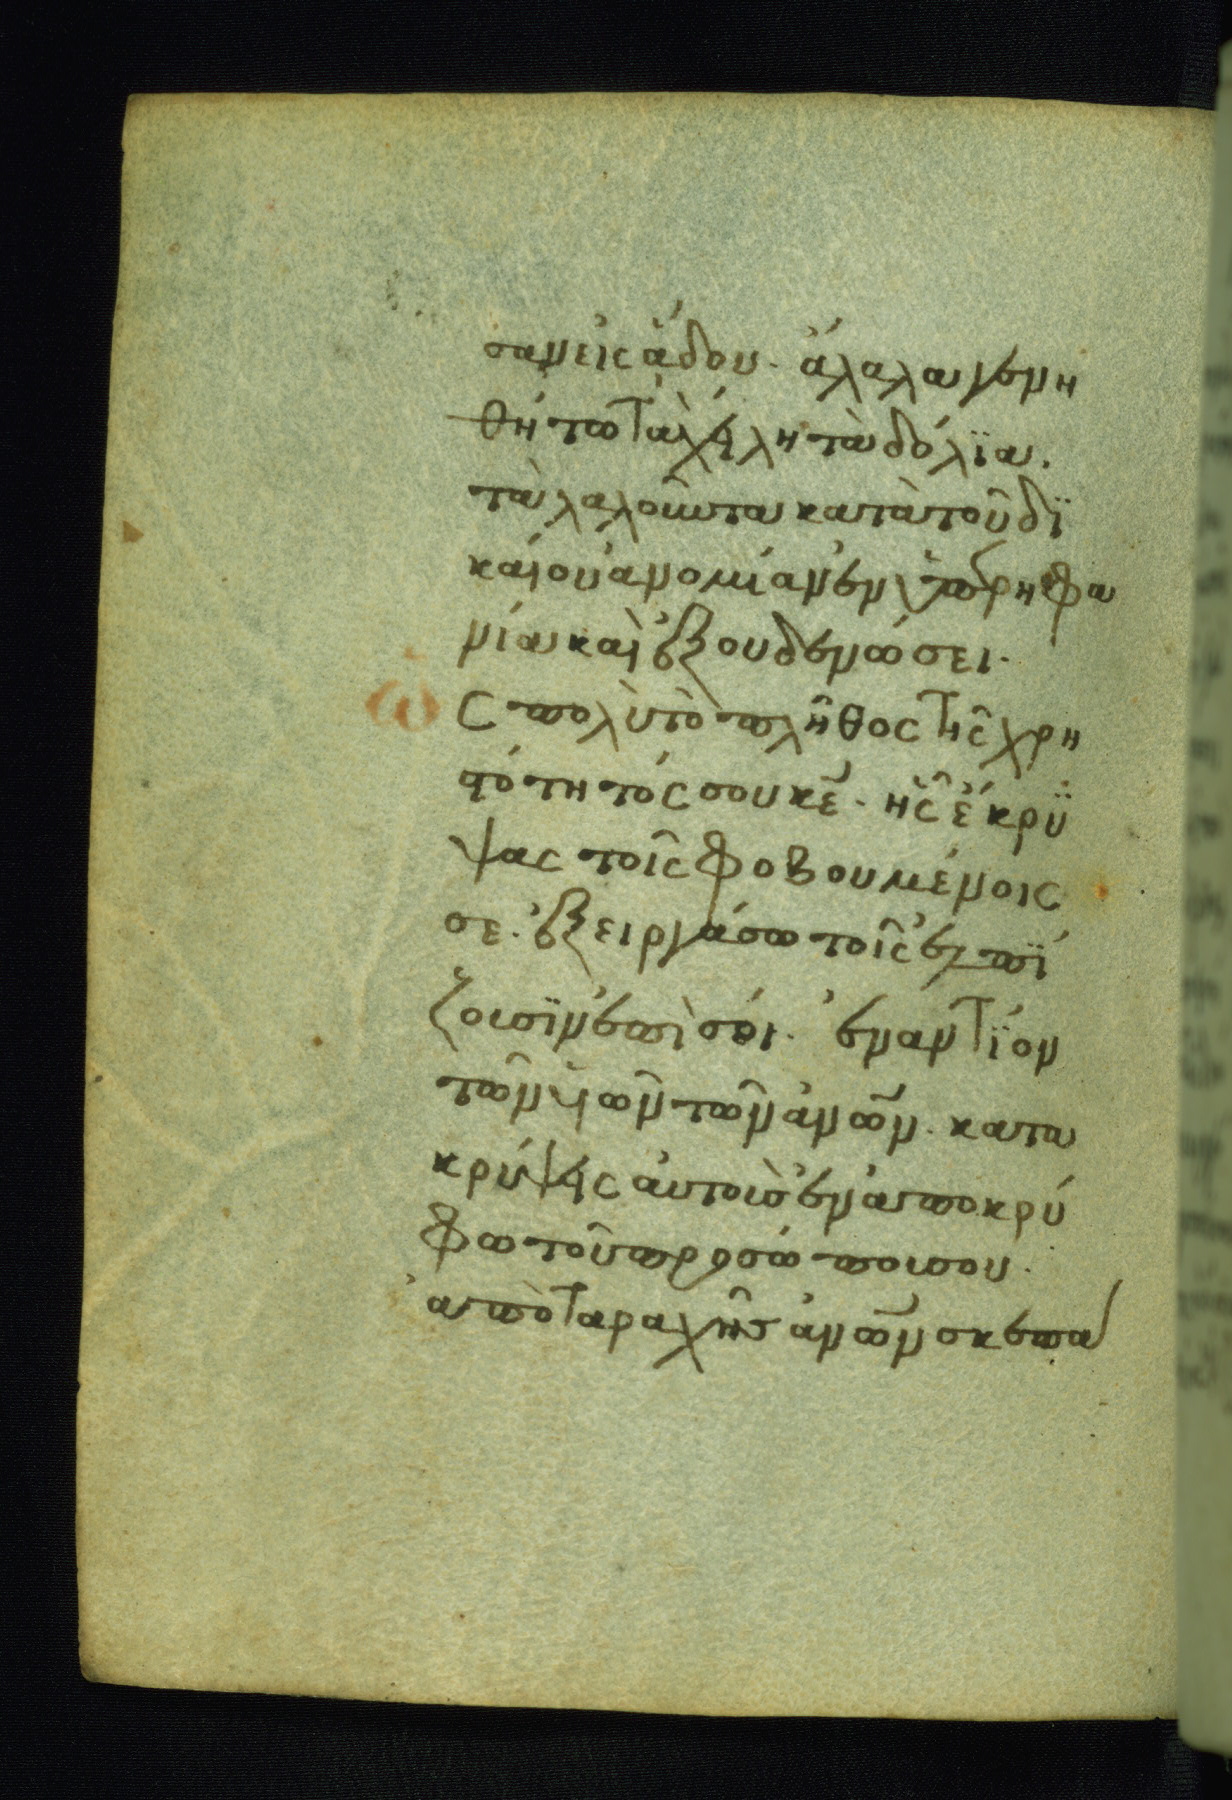 σαν εἰς ἅδου· ἄλαλα γενη
θήτω τὰ χείλη τὰ δόλϊα.
τὰ λαλοῦντα κατὰ τοῦ δϊ
καίου ἀνομίαν ἐν ὑπερηφα
νία καὶ ἐξουδενώσει.
ὡς πολὺ τὸ πλῆθος τῆς χρη
στότητός σου κε̄· ἧς ἔκρϋ
ψας τοῖς φοβουμένοις
σε· ἐξειργάσω τοῖς ἐλπϊ
ζουσϊν ἐπὶ σέ· ἐναντϊον
τῶν υἱῶν τῶν ἀνω̄ν· κατα
κρύψεις αὐτοὺς ἐν ἀποκρύ
φω τοῦ προσώπου σου.
ἀπὸ ταραχῆς ἀνω̄ν σκεπα